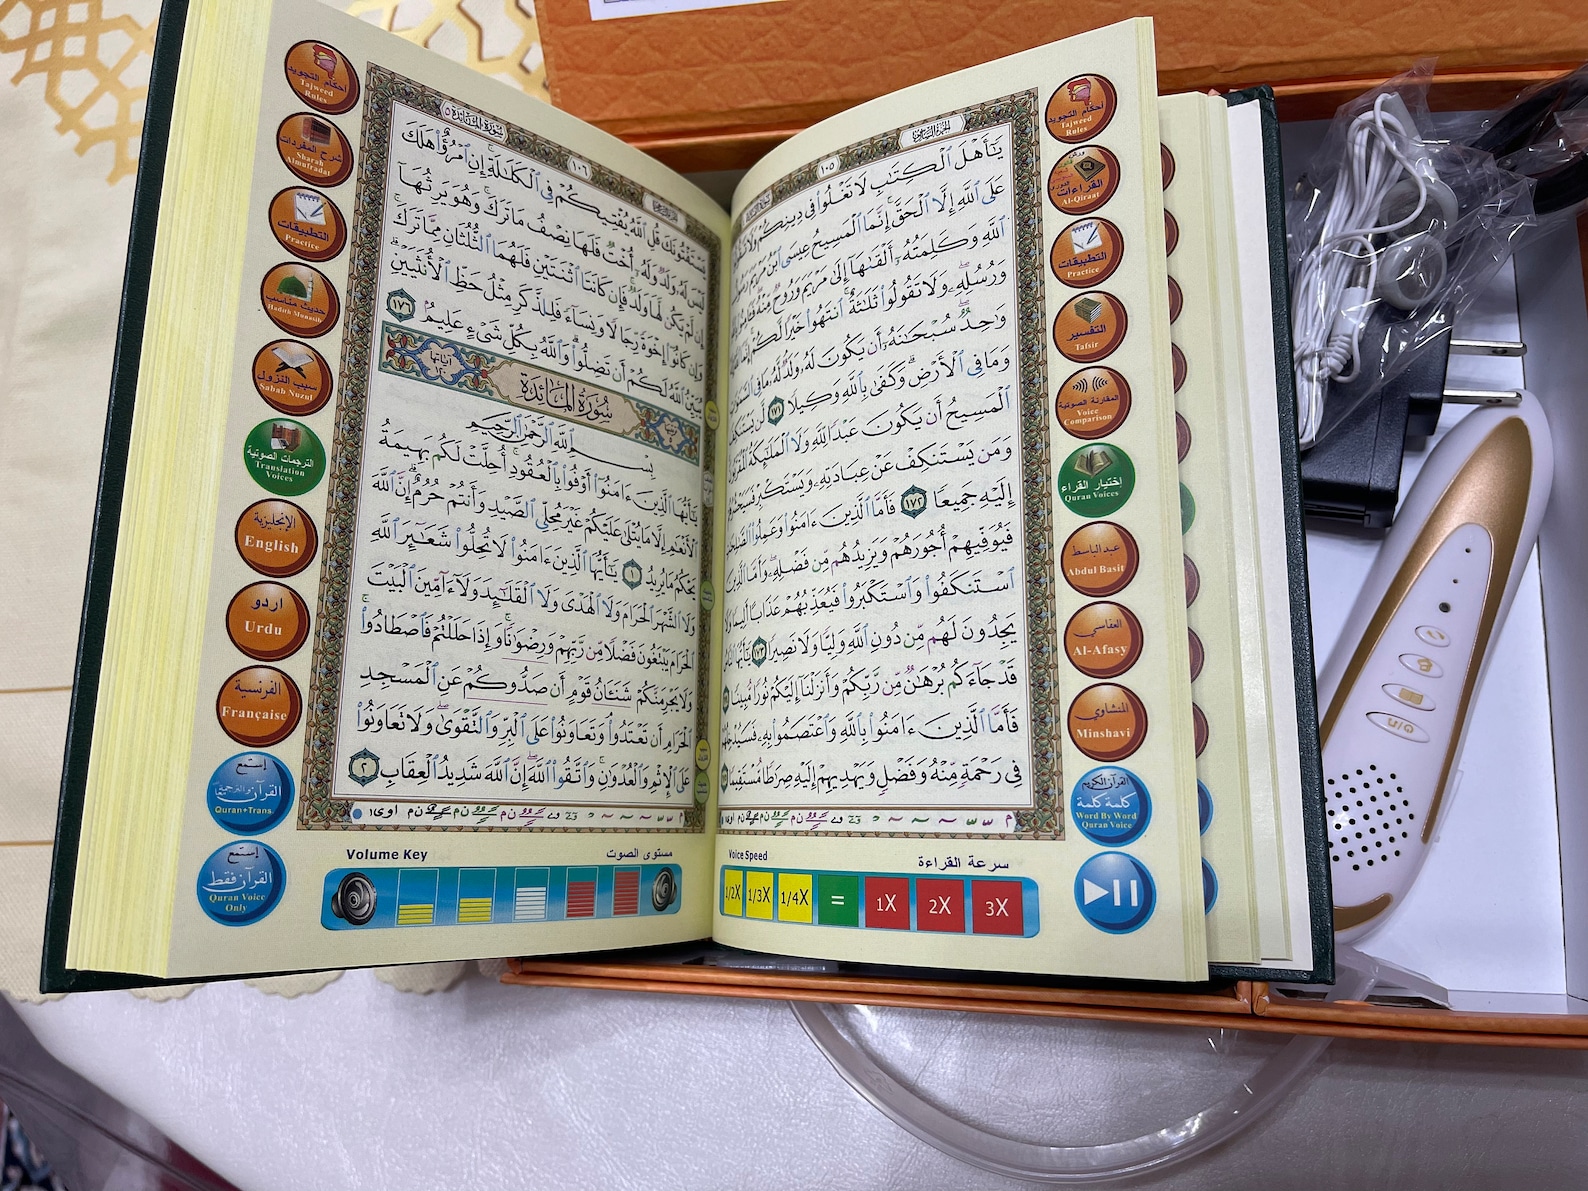 أحكام التجويد
Tajweed
Rules
القراءات
Al-Qiraat
التطبيقات
Practice
التفسير
Tafsir
المقارنة الصوتية
Voice
Comparison
إختيار القراء
Quran Voices
عبد الباسط
Abdul Basit
العفاسي
Al-Afasy
المنشاوي
Minshavi
القرآن الكريم
كلمة كلمة
Word By Word
Quran Voice
١٠٥
يَٰٓأَهْلَ ٱلْكِتَٰبِ لَا تَغْلُوا۟ فِى دِينِكُمْ
عَلَى ٱللَّهِ إِلَّا ٱلْحَقَّ إِنَّمَا ٱلْمَسِيحُ عِيسَى ٱبْنُ مَرْيَمَ
ٱللَّهِ وَكَلِمَتُهُۥٓ أَلْقَىٰهَآ إِلَىٰ مَرْيَمَ وَرُوحٌ مِّنْهُ
وَرُسُلِهِۦ وَلَا تَقُولُوا۟ ثَلَٰثَةٌ ٱنتَهُوا۟ خَيْرًا لَّكُمْ
وَٰحِدٌ سُبْحَٰنَهُۥٓ أَن يَكُونَ لَهُۥ وَلَدٌ لَّهُۥ مَا فِى
وَمَا فِى ٱلْأَرْضِ وَكَفَىٰ بِٱللَّهِ وَكِيلًا ١٧١ لَّن يَسْتَنكِفَ
ٱلْمَسِيحُ أَن يَكُونَ عَبْدًا لِّلَّهِ وَلَا ٱلْمَلَٰٓئِكَةُ ٱلْمُقَرَّبُونَ
وَمَن يَسْتَنكِفْ عَنْ عِبَادَتِهِۦ وَيَسْتَكْبِرْ
إِلَيْهِ جَمِيعًا ١٧٢ فَأَمَّا ٱلَّذِينَ ءَامَنُوا۟ وَعَمِلُوا۟
فَيُوَفِّيهِمْ أُجُورَهُمْ وَيَزِيدُهُم مِّن فَضْلِهِۦ وَأَمَّا ٱلَّذِينَ
ٱسْتَنكَفُوا۟ وَٱسْتَكْبَرُوا۟ فَيُعَذِّبُهُمْ عَذَابًا أَلِيمًا وَلَا
يَجِدُونَ لَهُم مِّن دُونِ ٱللَّهِ وَلِيًّا وَلَا نَصِيرًا ١٧٣ يَٰٓأَيُّهَا
قَدْ جَآءَكُم بُرْهَٰنٌ مِّن رَّبِّكُمْ وَأَنزَلْنَآ إِلَيْكُمْ نُورًا مُّبِينًا
فَأَمَّا ٱلَّذِينَ ءَامَنُوا۟ بِٱللَّهِ وَٱعْتَصَمُوا۟ بِهِۦ
فِى رَحْمَةٍ مِّنْهُ وَفَضْلٍ وَيَهْدِيهِمْ إِلَيْهِ صِرَٰطًا مُّسْتَقِيمًا
Voice Speed
سرعة القراءة
1/2X 1/3X 1/4X = 1X 2X 3X
سورة المائدة ٥
١٠٦
يَسْتَفْتُونَكَ قُلِ ٱللَّهُ يُفْتِيكُمْ فِى ٱلْكَلَٰلَةِ إِنِ ٱمْرُؤٌا۟ هَلَكَ
لَيْسَ لَهُۥ وَلَدٌ وَلَهُۥٓ أُخْتٌ فَلَهَا نِصْفُ مَا تَرَكَ وَهُوَ يَرِثُهَآ
إِن لَّمْ يَكُن لَّهَا وَلَدٌ فَإِن كَانَتَا ٱثْنَتَيْنِ فَلَهُمَا ٱلثُّلُثَانِ مِمَّا تَرَكَ
وَإِن كَانُوٓا۟ إِخْوَةً رِّجَالًا وَنِسَآءً فَلِلذَّكَرِ مِثْلُ حَظِّ ٱلْأُنثَيَيْنِ
يُبَيِّنُ ٱللَّهُ لَكُمْ أَن تَضِلُّوا۟ وَٱللَّهُ بِكُلِّ شَىْءٍ عَلِيمٌ ١٧٦
سُورَةُ المَائِدَةِ
آياتها
١٢٠
بِسْمِ ٱللَّهِ ٱلرَّحْمَٰنِ ٱلرَّحِيمِ
يَٰٓأَيُّهَا ٱلَّذِينَ ءَامَنُوٓا۟ أَوْفُوا۟ بِٱلْعُقُودِ أُحِلَّتْ لَكُم بَهِيمَةُ
ٱلْأَنْعَٰمِ إِلَّا مَا يُتْلَىٰ عَلَيْكُمْ غَيْرَ مُحِلِّى ٱلصَّيْدِ وَأَنتُمْ حُرُمٌ إِنَّ ٱللَّهَ
يَحْكُمُ مَا يُرِيدُ ١ يَٰٓأَيُّهَا ٱلَّذِينَ ءَامَنُوا۟ لَا تُحِلُّوا۟ شَعَٰٓئِرَ ٱللَّهِ
وَلَا ٱلشَّهْرَ ٱلْحَرَامَ وَلَا ٱلْهَدْىَ وَلَا ٱلْقَلَٰٓئِدَ وَلَآ ءَآمِّينَ ٱلْبَيْتَ
ٱلْحَرَامَ يَبْتَغُونَ فَضْلًا مِّن رَّبِّهِمْ وَرِضْوَٰنًا وَإِذَا حَلَلْتُمْ فَٱصْطَادُوا۟
وَلَا يَجْرِمَنَّكُمْ شَنَـَٔانُ قَوْمٍ أَن صَدُّوكُمْ عَنِ ٱلْمَسْجِدِ
ٱلْحَرَامِ أَن تَعْتَدُوا۟ وَتَعَاوَنُوا۟ عَلَى ٱلْبِرِّ وَٱلتَّقْوَىٰ وَلَا تَعَاوَنُوا۟
عَلَى ٱلْإِثْمِ وَٱلْعُدْوَٰنِ وَٱتَّقُوا۟ ٱللَّهَ إِنَّ ٱللَّهَ شَدِيدُ ٱلْعِقَابِ ٢
Volume Key
مستوى الصوت
أحكام التجويد
Tajweed
Rules
شرح المفردات
Sharah
Almufradat
التطبيقات
Practice
حديث مناسب
Hadith Munasib
سبب النزول
Sabab Nuzul
الترجمات الصوتية
Translation
Voices
الإنجليزية
English
اردو
Urdu
الفرنسية
Française
إستمع
القرآن والترجمة معًا
Quran+Trans.
إستمع
القرآن فقط
Quran Voice
Only